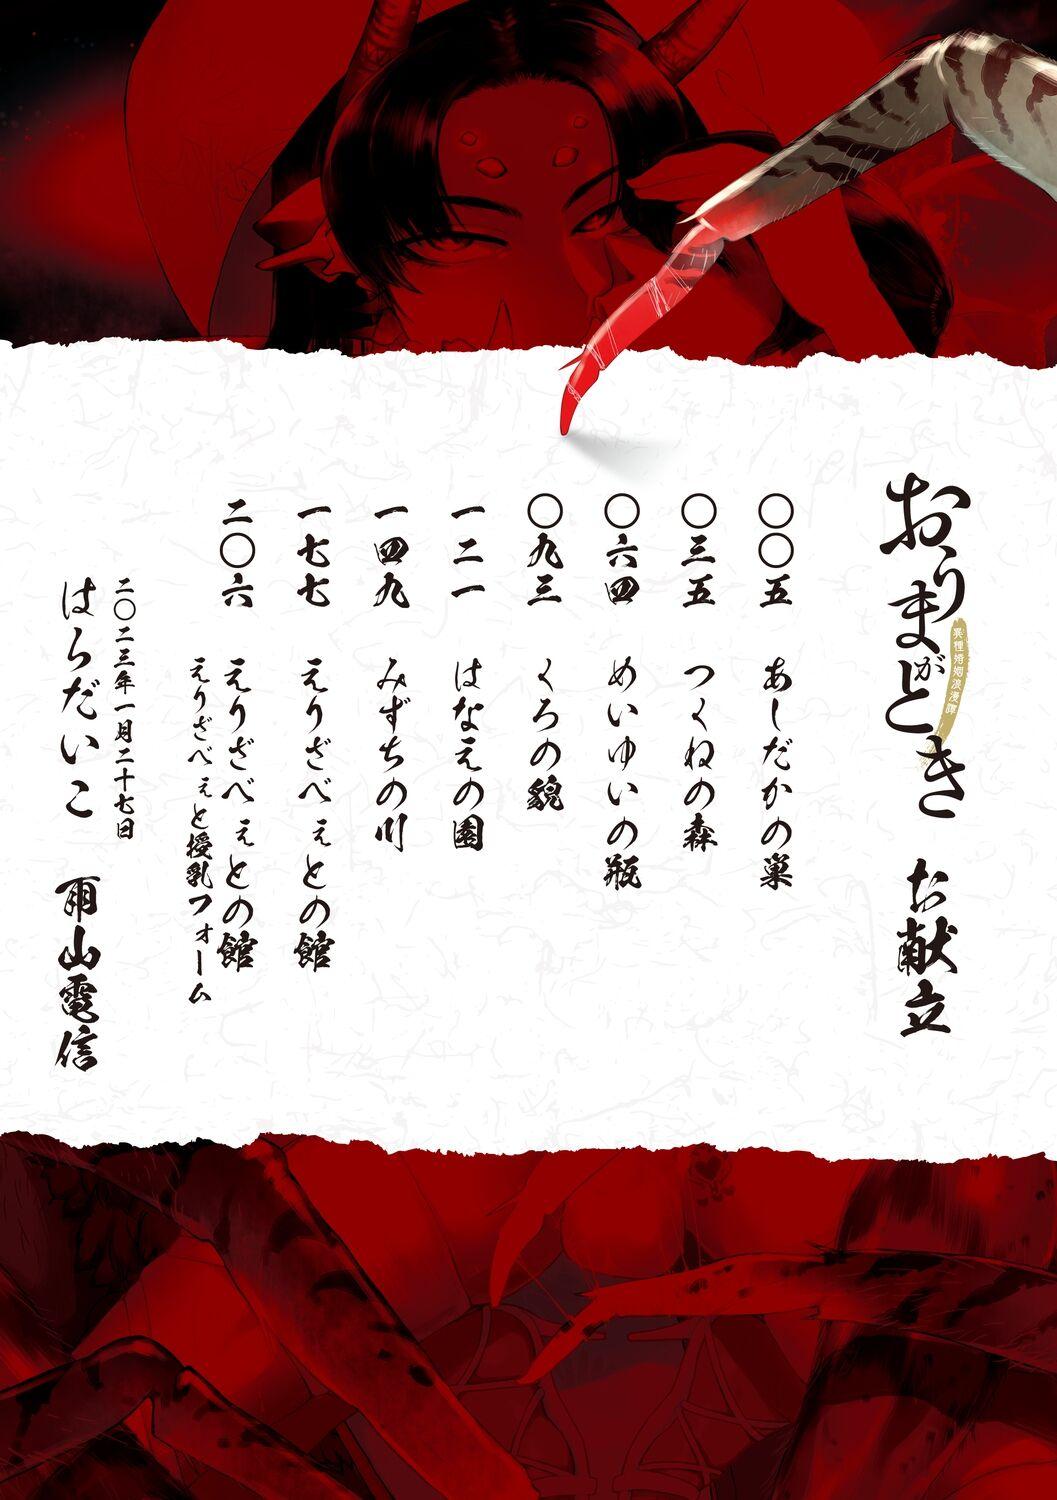 おうまがとき　お献立
異種婚姻浪漫譚
〇〇五　あしだかの巣
〇三五　つくねの森
〇六四　めいゆいの瓶
〇九三　くろの貌
一二一　はなえの園
一四九　みずちの川
一七七　えりざべぇとの館
二〇六　えりざべぇとの館
えりざべぇと授乳フォーム
二〇二三年一月二十七日
はらだいこ　雨山電信